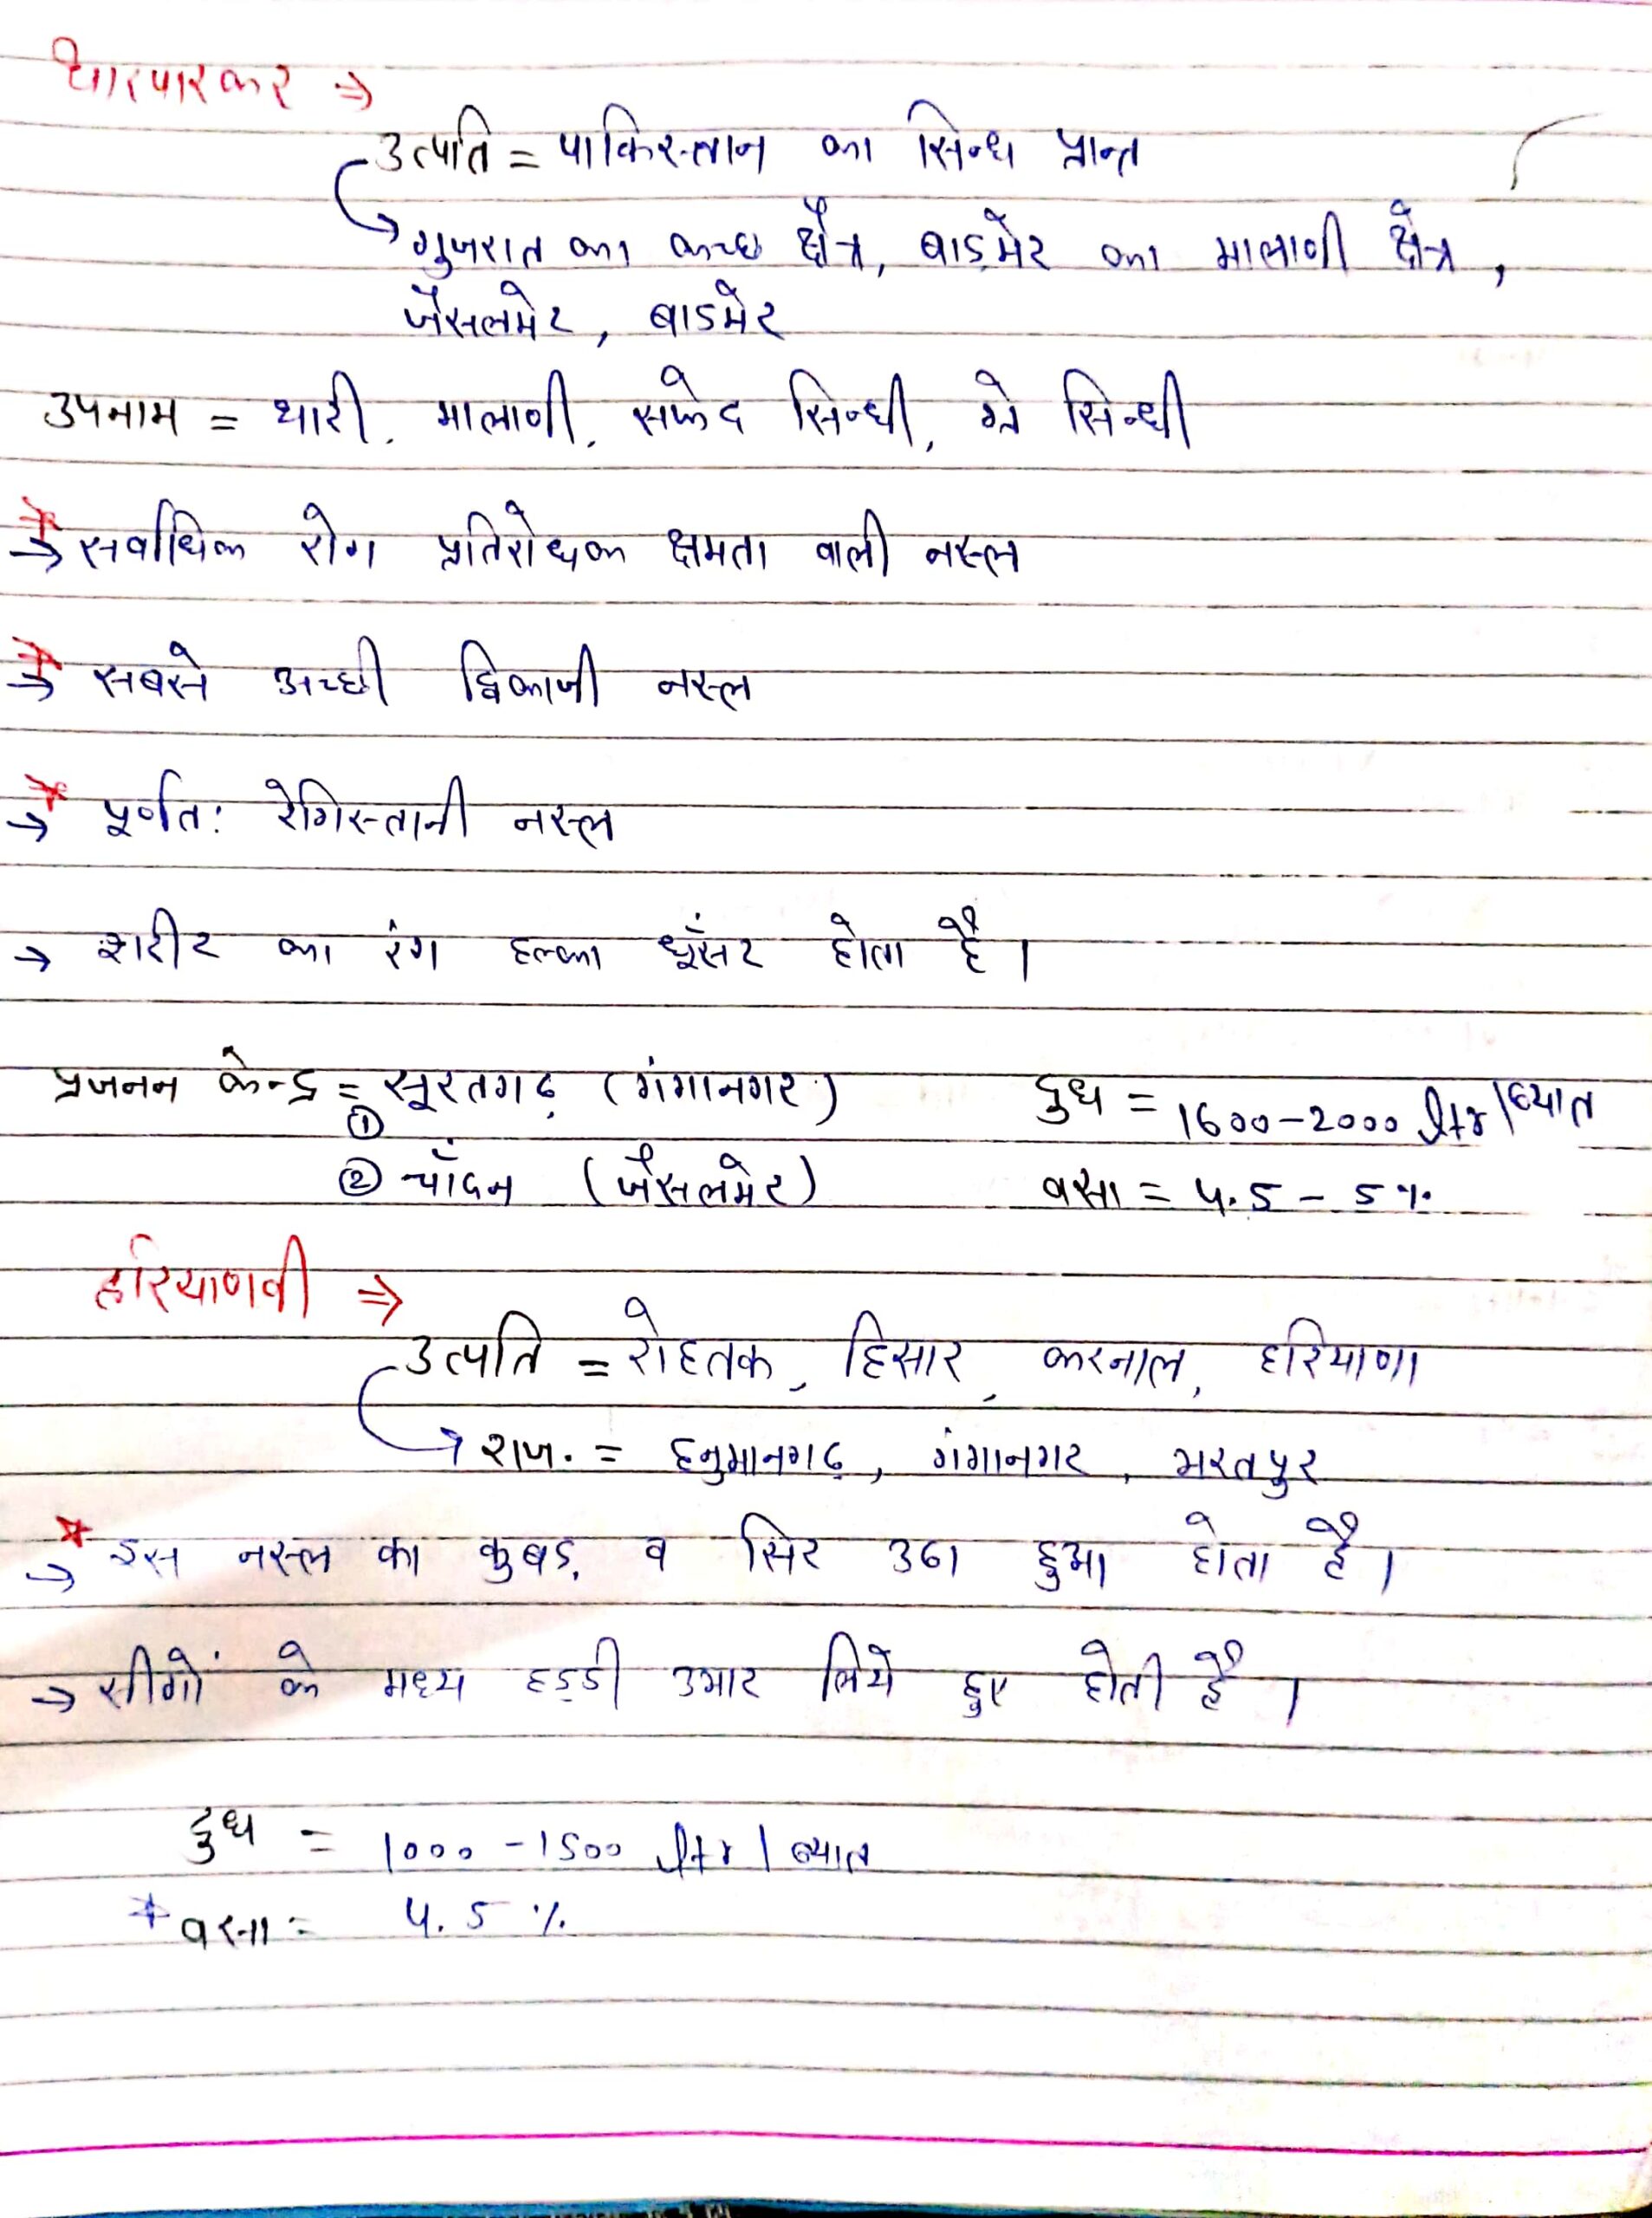 थारपारकर ⇒
उत्पति = पाकिस्तान का सिन्ध प्रान्त
गुजरात का कच्छ क्षैत्र, बाड़मेर का मालाणी क्षेत्र,
जैसलमेर, बाडमेर
उपनाम = थारी, मालाणी, सफेद सिन्धी, ग्रे सिन्धी
→ सर्वाधिक रोग प्रतिरोधक क्षमता वाली नस्ल
→ सबसे अच्छी द्विकाजी नस्ल
→ पूर्णत: रेगिस्तानी नस्ल
→ शरीर का रंग हल्का धूंसर होता है।
प्रजनन केन्द्र = ① सूरतगढ़ (गंगानगर) दुध = 1600-2000 ltr/ब्यात
② चाँदन (जैसलमेर) वसा = 4.5 - 5%
हरियाणवी ⇒
उत्पति = रोहतक, हिसार, करनाल, हरियाणा
→ राज. = हनुमानगढ़, गंगानगर, भरतपुर
→ इस नस्ल का कुबड़ व सिर उठा हुआ होता है।
→ सीगों के मध्य हड्डी उभार लिये हुए होती है।
दुध = 1000-1500 ltr/ब्यात
* वसा = 4.5%